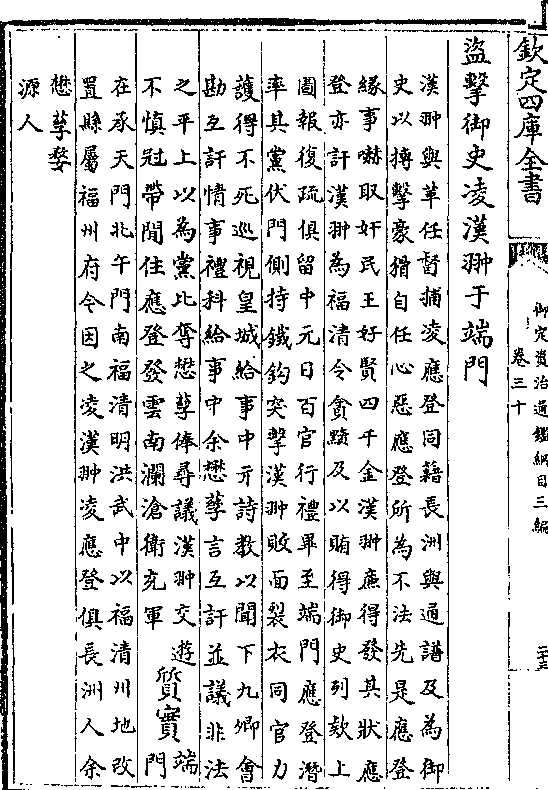 欽定四庫全書
御定資治通鑑綱目三編
卷三十
盜擊御史凌漢翀于端門
漢翀與革任督捕凌應登同籍長洲與通譜及為御
史以搏擊豪猾自任心惡應登所為不法先是應登
緣事嚇取奸民王好賢四千金漢翀廉得發其狀應
登亦訐漢翀為福清令貪黷及以賄得御史列欵上
圖報復疏俱留中元日百官行禮畢至端門應登潛
率其黨伏門側持鐵鈎突擊漢翀敗面裂衣同官力
護得不死巡視皇城給事中亓詩教以聞下九卿會
勘互訐情事禮科給事中余懋孳言互訐並議非法
之平上以為黨比奪懋孳俸尋議漢翀交遊
不慎冠帶閒住應登發雲南瀾滄衛充軍
質實
端
門
在承天門北午門南福清明洪武中以福清州地改
置縣屬福州府今因之凌漢翀凌應登俱長洲人余
懋孳婺
源人